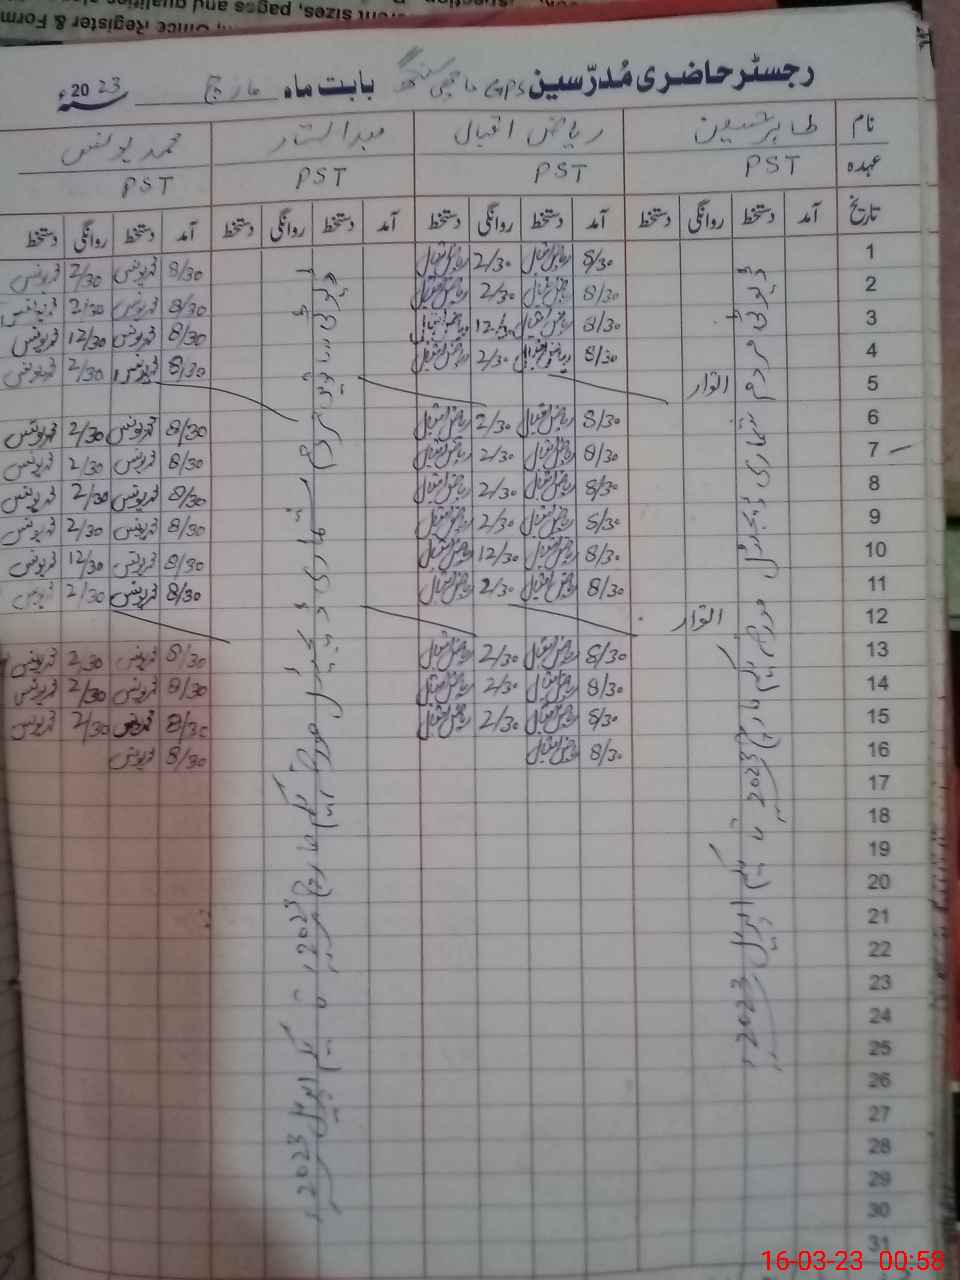 رجسٹر حاضری مُدرّسین GPS حاجی سنگھ بابت ماہ مارچ 2023ء
نام طاہر حسین ریاض اقبال عبدالستار محمد یونس
عہدہ PST PST PST PST
تاریخ آمد دستخط روانگی دستخط آمد دستخط روانگی دستخط آمد دستخط روانگی دستخط آمد دستخط روانگی دستخط
1 8/30 ریاض اقبال 2/30 ریاض اقبال 8/30 محمد یونس 2/30 محمد یونس
2 8/30 ریاض اقبال 2/30 ریاض اقبال 8/30 محمد یونس 2/30 محمد یونس
3 8/30 ریاض اقبال 12/30 ریاض اقبال 8/30 محمد یونس 12/30 محمد یونس
4 8/30 ریاض اقبال 2/30 ریاض اقبال 8/30 محمد یونس 2/30 محمد یونس
5 اتوار
6 8/30 ریاض اقبال 2/30 ریاض اقبال 8/30 محمد یونس 2/30 محمد یونس
7 8/30 ریاض اقبال 2/30 ریاض اقبال 8/30 محمد یونس 2/30 محمد یونس
8 8/30 ریاض اقبال 2/30 ریاض اقبال 8/30 محمد یونس 2/30 محمد یونس
9 8/30 ریاض اقبال 2/30 ریاض اقبال 8/30 محمد یونس 2/30 محمد یونس
10 8/30 ریاض اقبال 12/30 ریاض اقبال 8/30 محمد یونس 12/30 محمد یونس
11 8/30 ریاض اقبال 2/30 ریاض اقبال 8/30 محمد یونس 2/30 محمد یونس
12 اتوار
13 8/30 ریاض اقبال 2/30 ریاض اقبال 8/30 محمد یونس 2/30 محمد یونس
14 8/30 ریاض اقبال 2/30 ریاض اقبال 8/30 محمد یونس 2/30 محمد یونس
15 8/30 ریاض اقبال 2/30 ریاض اقبال 8/30 محمد یونس 2/30 محمد یونس
16 8/30 ریاض اقبال 8/30 محمد یونس
17
18
19
20
21
22
23
24
25
26
27
28
29
30
31
ڈیوٹی مردم شماری ڈیجیٹل مورخہ یکم مارچ 2023ء تا یکم اپریل 2023ء
ڈیوٹی مردم شماری ڈیجیٹل مورخہ یکم مارچ 2023ء تا یکم اپریل 2023ء
sizes, pages and qualities
Office Register & Form
16-03-23 00:58